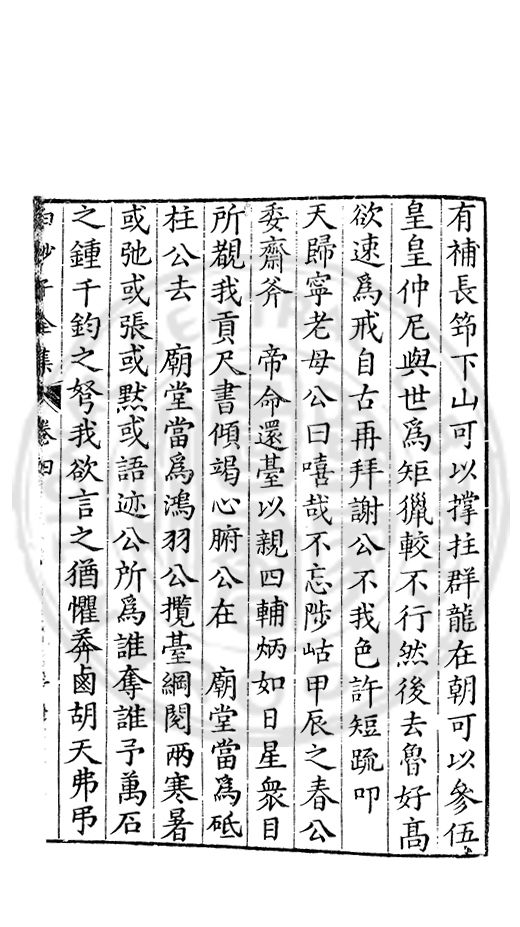 有補長笻下山可以撐拄群龍在朝可以參伍
皇皇仲尼與世爲矩獵較不行然後去魯好髙
欲速爲戒自古再拜謝公不我色許短疏叩
天歸寧老母公曰嘻哉不忘陟岵甲辰之春公
委齋斧　帝命還臺以親四輔炳如日星衆目
所覩我貢尺書傾竭心腑公在　廟堂當爲砥
柱公去　廟堂當爲鴻羽公攬臺綱閱兩寒暑
或弛或張或黙或語迹公所爲誰奪誰予萬石
之鍾千鈞之弩我欲言之猶懼莽鹵胡天弗弔
白沙子全集　卷四